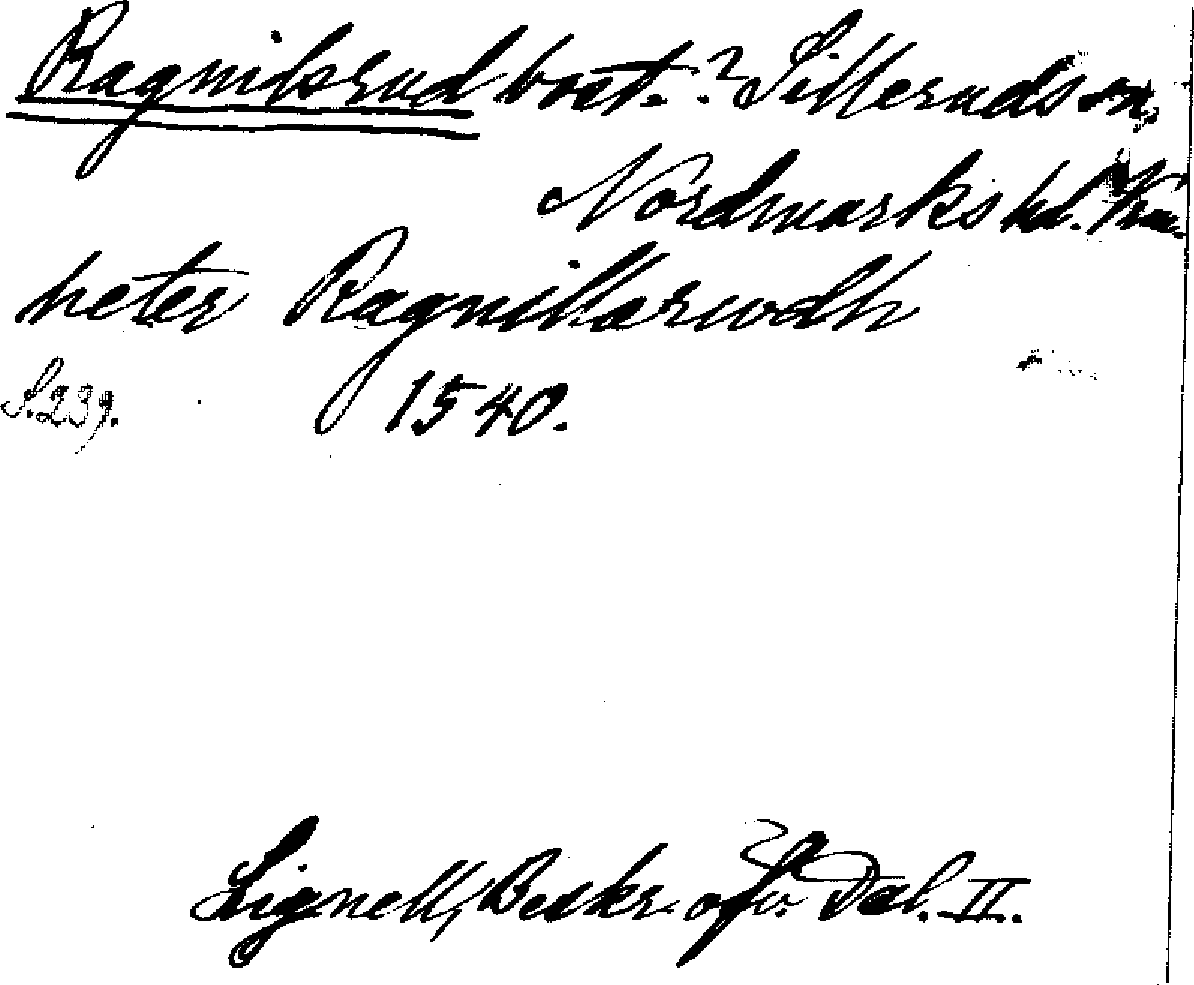 Ragnilsrud bost.? Silleruds sn,
Nordmarks hd. Vrm.
heter Ragnillarwdh
S. 239. 1540.
Lignell, Beskr. öfv. Dal. II.